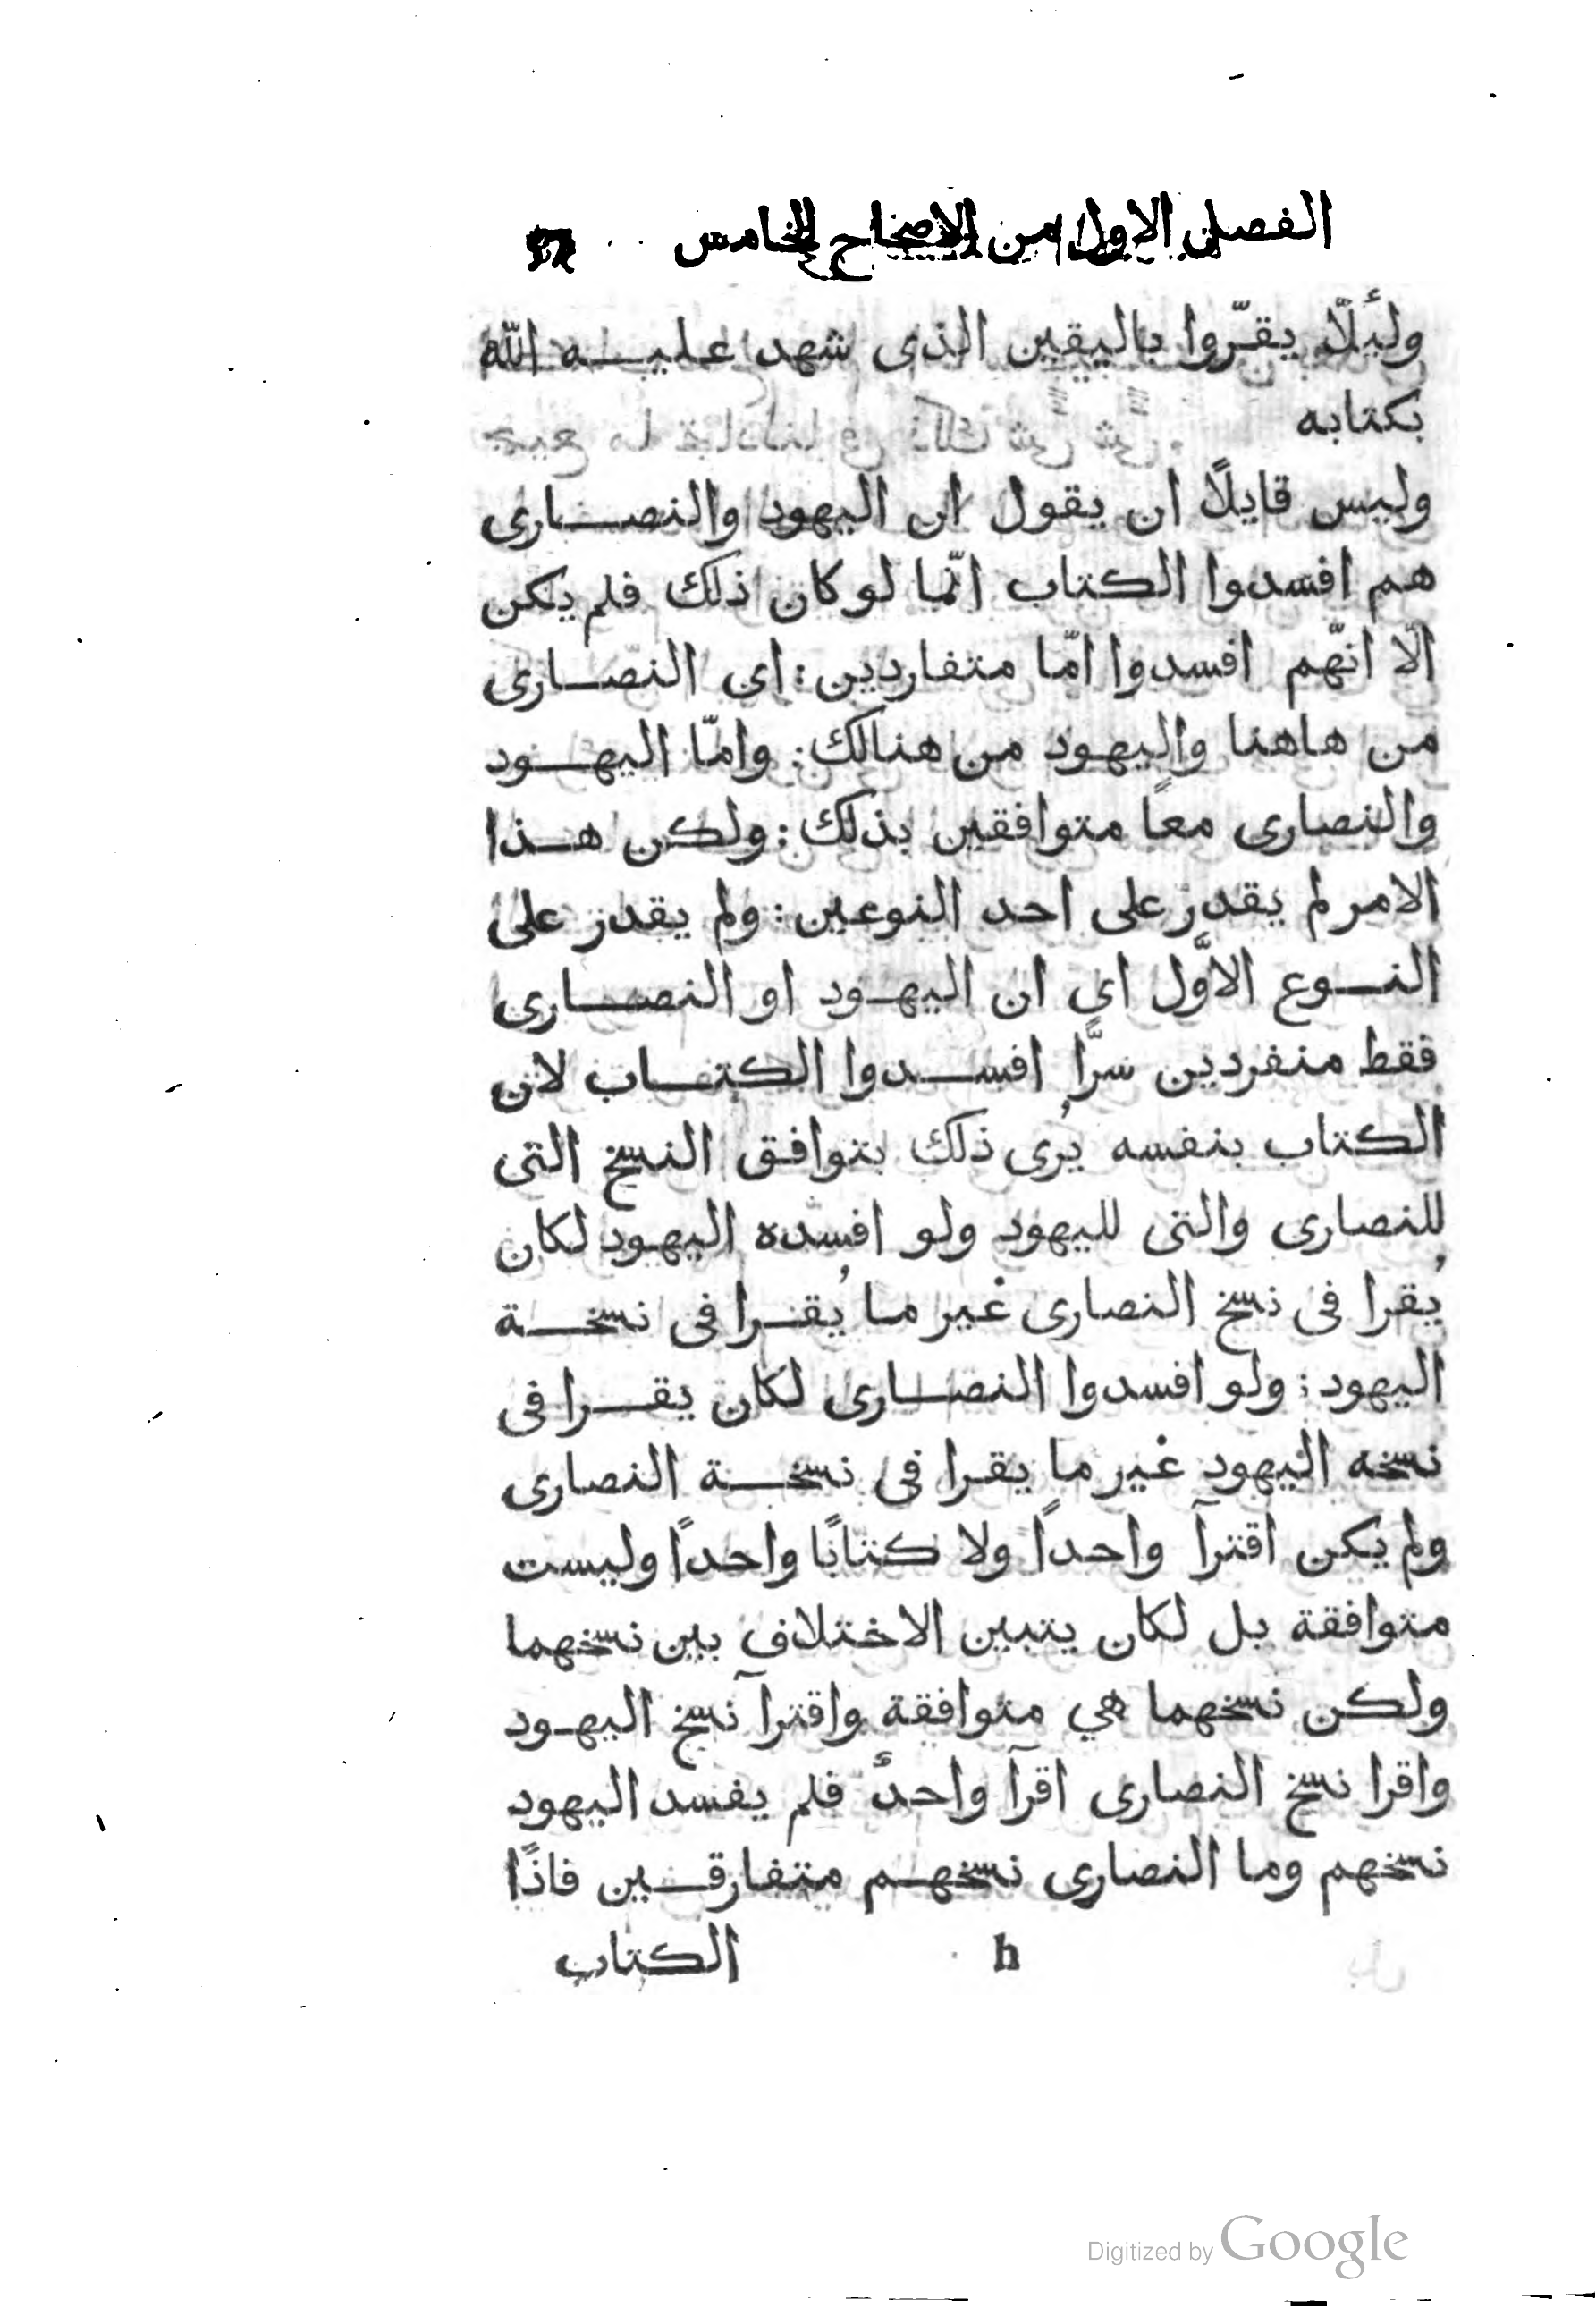 الفصل الاول من الاصحاح الخامس
ولئلّا يقرّوا باليقين الذى شهد عليه الله
بكتابه
وليس قايلًا ان يقول ان اليهود والنصارى
هم افسدوا الكتاب انّما لو كان ذلك فلم يكن
الّا انّهم افسدوا امّا متفاردين : اى النصّارى
من هاهنا واليهود من هنالك : وامّا اليهود
والنصارى معًا متوافقين بذلك : ولكن هذا
الامر لم يقدر على احد النوعين : ولم يقدر على
النوع الاوَّل اى ان اليهود او النصارى
فقط منفردين سرًّا افسدوا الكتاب لان
الكتاب بنفسه يُرى ذلك بتوافق النسخ التى
للنصارى والتى لليهود ولو افسده اليهود لكان
يُقرا فى نسخ النصارى غير ما يُقرا فى نسخة
اليهود : ولو افسدوا النصارى لكان يقرا فى
نسخه اليهود غير ما يقرا فى نسخة النصارى
ولم يكن اقترآ واحدًا ولا كتابًا واحدًا وليست
متوافقة بل لكان يتبين الاختلاف بين نسخهما
ولكن نسخهما هي متوافقة واقترآ نسخ اليهود
واقرا نسخ النصارى اقرآ واحدٌ فلم يفسد اليهود
نسخهم وما النصارى نسخهم متفارقين فاذًا
h الكتاب
Digitized by Google